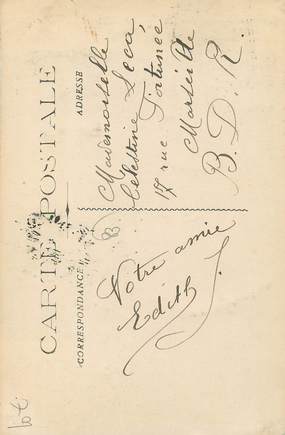 CARTE POSTALE
CORRESPONDANCE
ADRESSE
Votre amie
Edith
Mademoiselle
Célestine
17 rue Fortunée
Marseille
B.D.R.